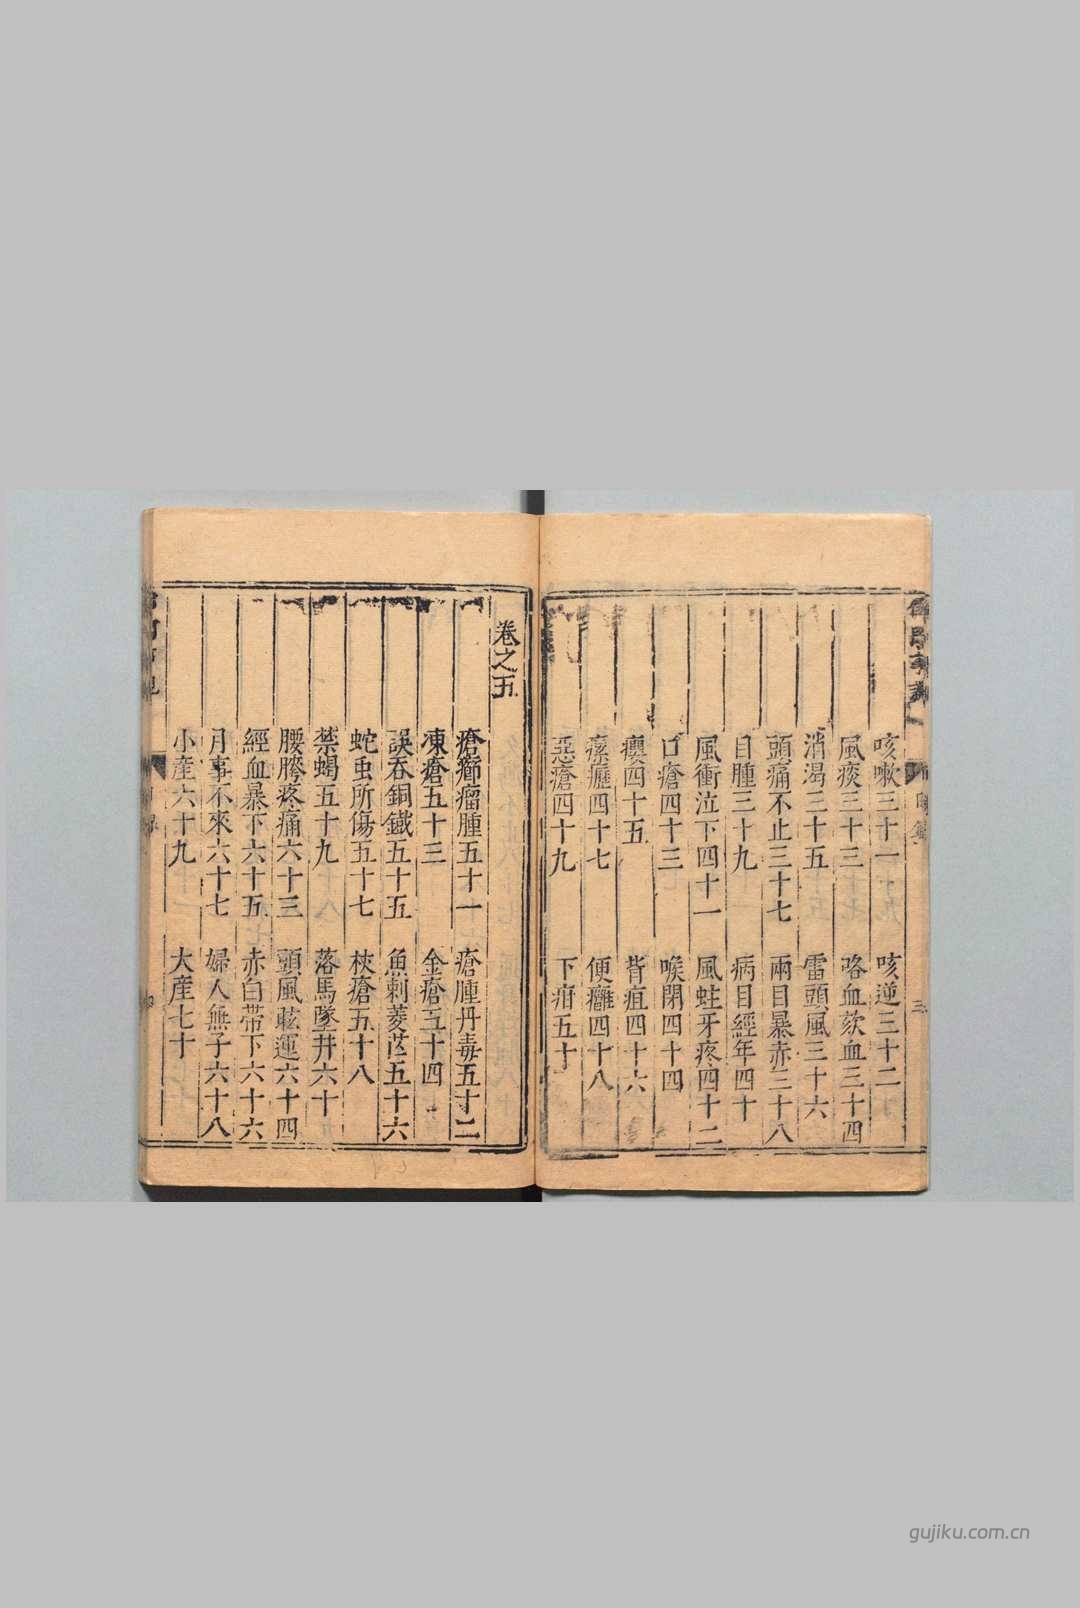 咳嗽三十一　咳逆三十二
風痰三十三　咯血欬血三十四
消渴三十五　雷頭風三十六
頭痛不止三十七　兩目暴赤三十八
目腫三十九　病目經年四十
風衝泣下四十一　風蛀牙疼四十二
口瘡四十三　喉閉四十四
癭四十五　背疽四十六
瘰癧四十七　便癰四十八
惡瘡四十九　下疳五十
卷之五
瘡癤瘤腫五十一　瘡腫丹毒五十二
凍瘡五十三　金瘡五十四
誤吞銅鐵五十五　魚刺菱芒五十六
蛇虫所傷五十七　杖瘡五十八
禁蝎五十九　落馬墜井六十
腰胯疼痛六十三　頭風眩運六十四
經血暴下六十五　赤白帶下六十六
月事不來六十七　婦人無子六十八
小產六十九　大產七十
gujiku.com.cn